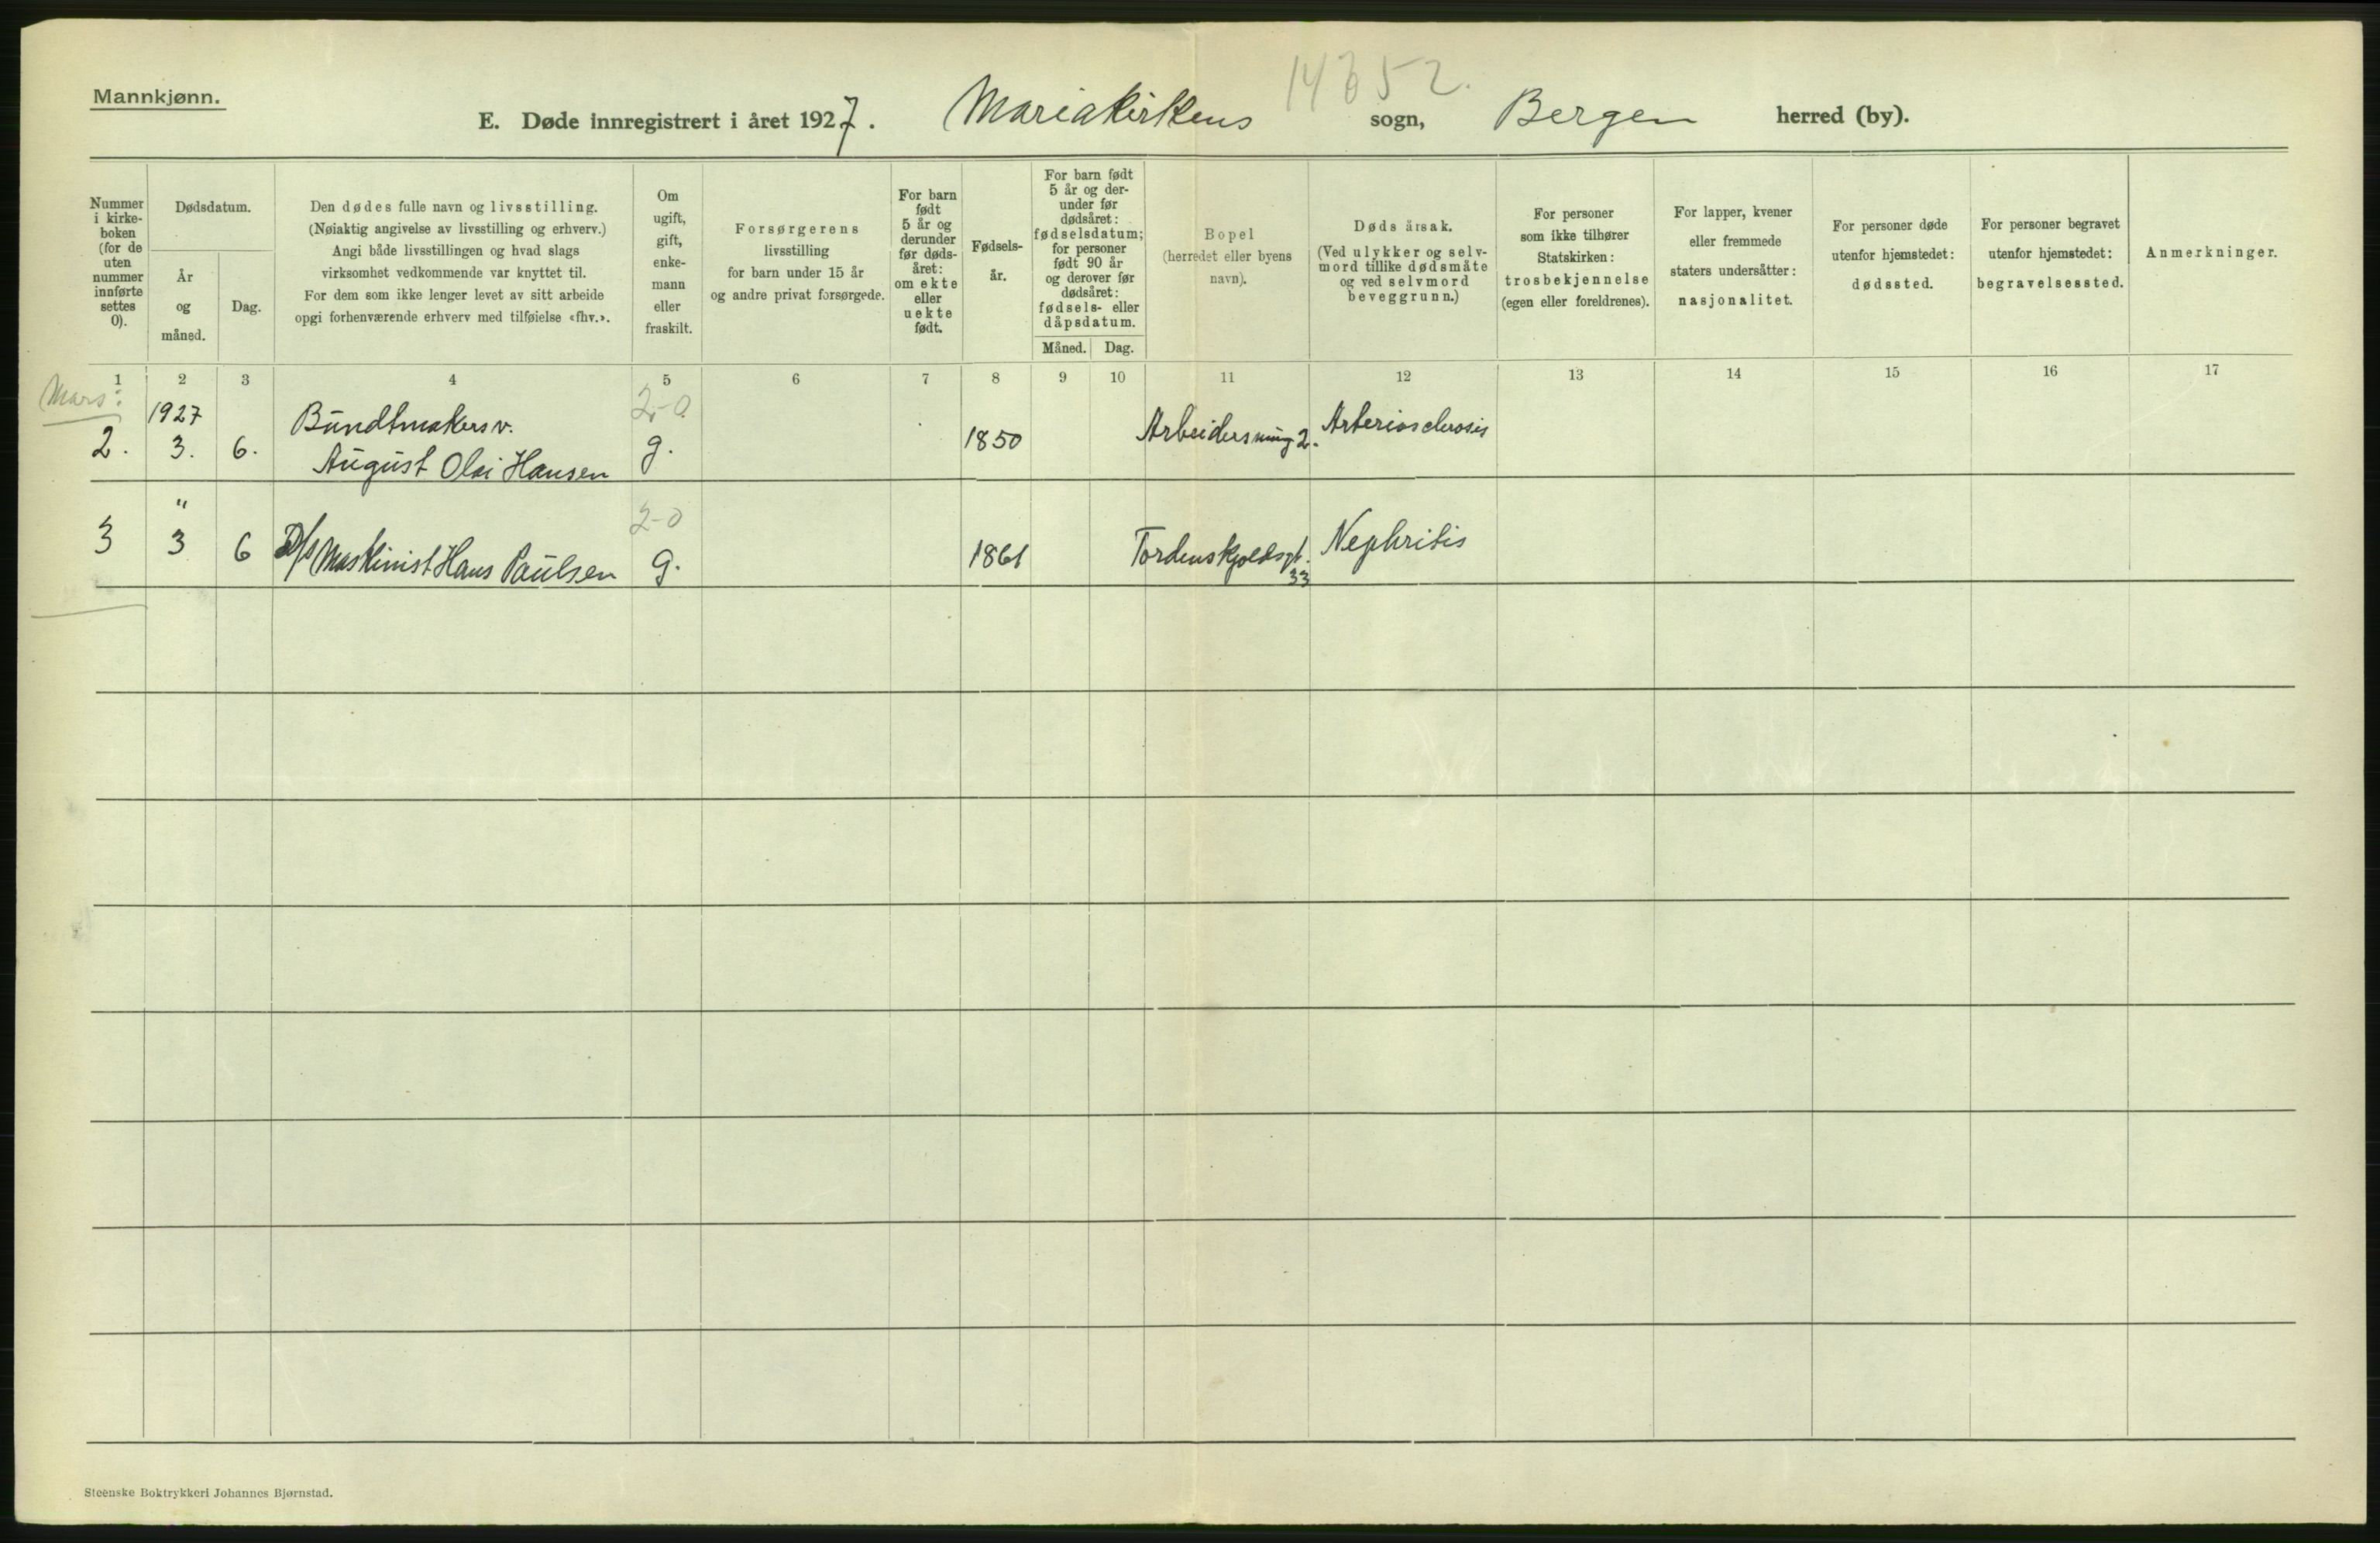 Mannkjønn.
14652.
E. Døde innregistrert i året 1927. Mariakirkens sogn, Bergen herred (by).
Nummer
i kirke-
boken
(for de
uten
nummer
innførte
settes
0).
Dødsdatum.
År
og
måned.
Dag.
Den dødes fulle navn og livsstilling.
(Nøiaktig angivelse av livsstilling og erhverv.)
Angi både livsstillingen og hvad slags
virksomhet vedkommende var knyttet til.
For dem som ikke lenger levet av sitt arbeide
opgi forhenværende erhverv med tilføielse «fhv.».
Om
ugift,
gift,
enke-
mann
eller
fraskilt.
Forsørgerens
livsstilling
for barn under 15 år
og andre privat forsørgede.
For barn
født
5 år og
derunder
før døds-
året:
om ekte
eller
uekte
født.
Fødsels-
år.
For barn født
5 år og der-
under før
dødsåret:
fødselsdatum;
for personer
født 90 år
og derover før
dødsåret:
fødsels- eller
dåpsdatum.
Måned. Dag.
Bopel
(herredet eller byens
navn).
Døds årsak.
(Ved ulykker og selv-
mord tillike dødsmåte
og ved selvmord
beveggrunn.)
For personer
som ikke tilhører
Statskirken:
trosbekjennelse
(egen eller foreldrenes).
For lapper, kvener
eller fremmede
staters undersåtter:
nasjonalitet.
For personer døde
utenfor hjemstedet:
dødssted.
For personer begravet
utenfor hjemstedet:
begravelsessted.
Anmerkninger.
1 2 3 4 5 6 7 8 9 10 11 12 13 14 15 16 17
Mars:
1927 Bundtmakersv. 2-0
2. 3. 6. August Olai Hansen g. 1850 Arbeidersmug 2. Arteriosclerosis
" 2-0
3 3 6 D/s Maskinist Hans Paulsen g. 1861 Tordenskjoldsgt. Nephritis
33
Steenske Boktrykkeri Johannes Bjørnstad.